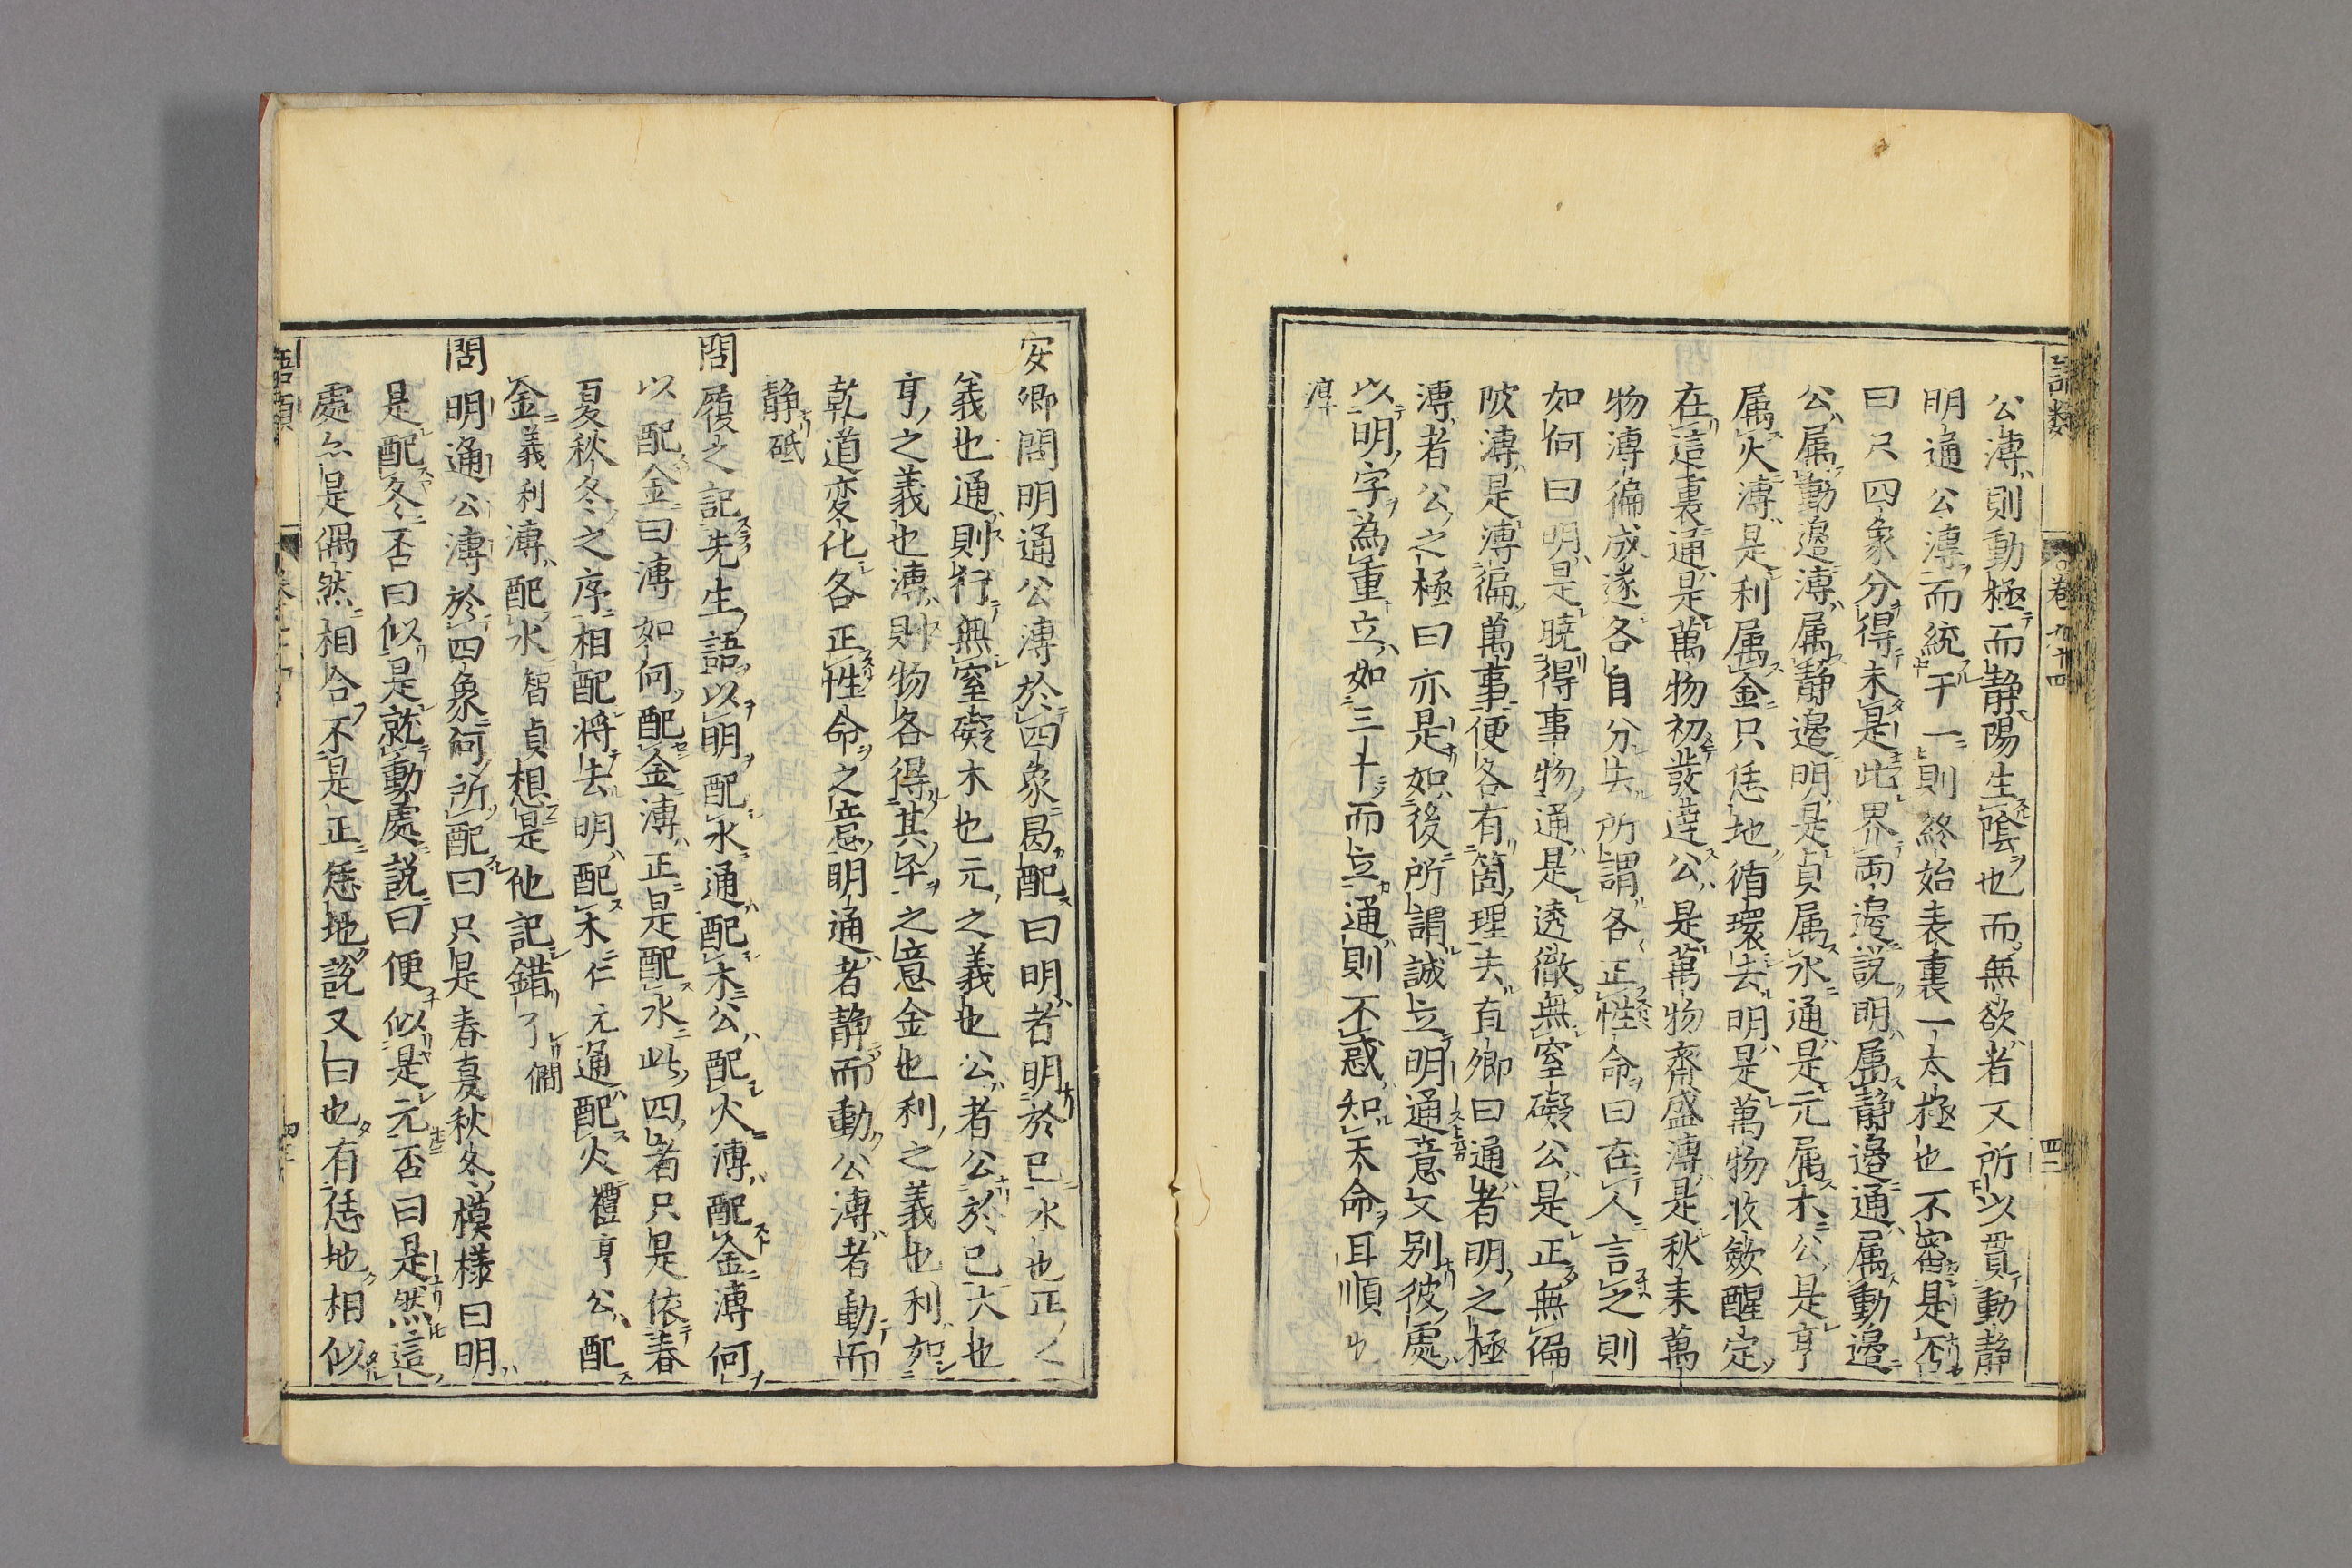 語類
卷九十四
四二
公溥則動極而靜陽生陰也而無欲者又所以貫動靜
明通公溥而統于一則終始表裏一太極也不審是否
曰只四象分得未是此界兩邊說明屬靜邊通屬動邊
公屬動邊溥屬靜邊明是貞屬水通是元屬木公是亨
屬火溥是利屬金只恁地循環去明是萬物收斂醒定
在這裏通是萬物初發達公是萬物齊盛溥是秋來萬
物溥徧成遂各自分去所謂各正性命曰在人言之則
如何曰明是曉得事物通是透徹無窒礙公是正無偏
陂溥是溥徧萬事便各有箇理去直卿曰通者明之極
溥者公之極曰亦是如後所謂誠立明通意又别彼處
以明字為重立如三十而立通則不惑知天命耳順也
淳
安卿問明通公溥於四象曷配曰明者明於己水也正之
義也通則行無窒礙木也元之義也公者公於己火也
亨之義也溥則物各得其平之意金也利之義也利如
乾道変化各正性命之意明通者静而動公溥者動而
静砥
問履之記先生語以明配水通配木公配火溥配金溥何
以配金曰溥如何配金溥正是配水此四者只是依春
夏秋冬之序相配將去明配木仁元通配火禮亨公配
金義利溥配水智貞想是他記錯了僩
問明通公溥於四象何所配曰只是春夏秋冬模様曰明
是配冬否曰似是就動處說曰便似是元否曰是然這
處亦是偶然相合不是正恁地說又曰也有恁地相似
語類